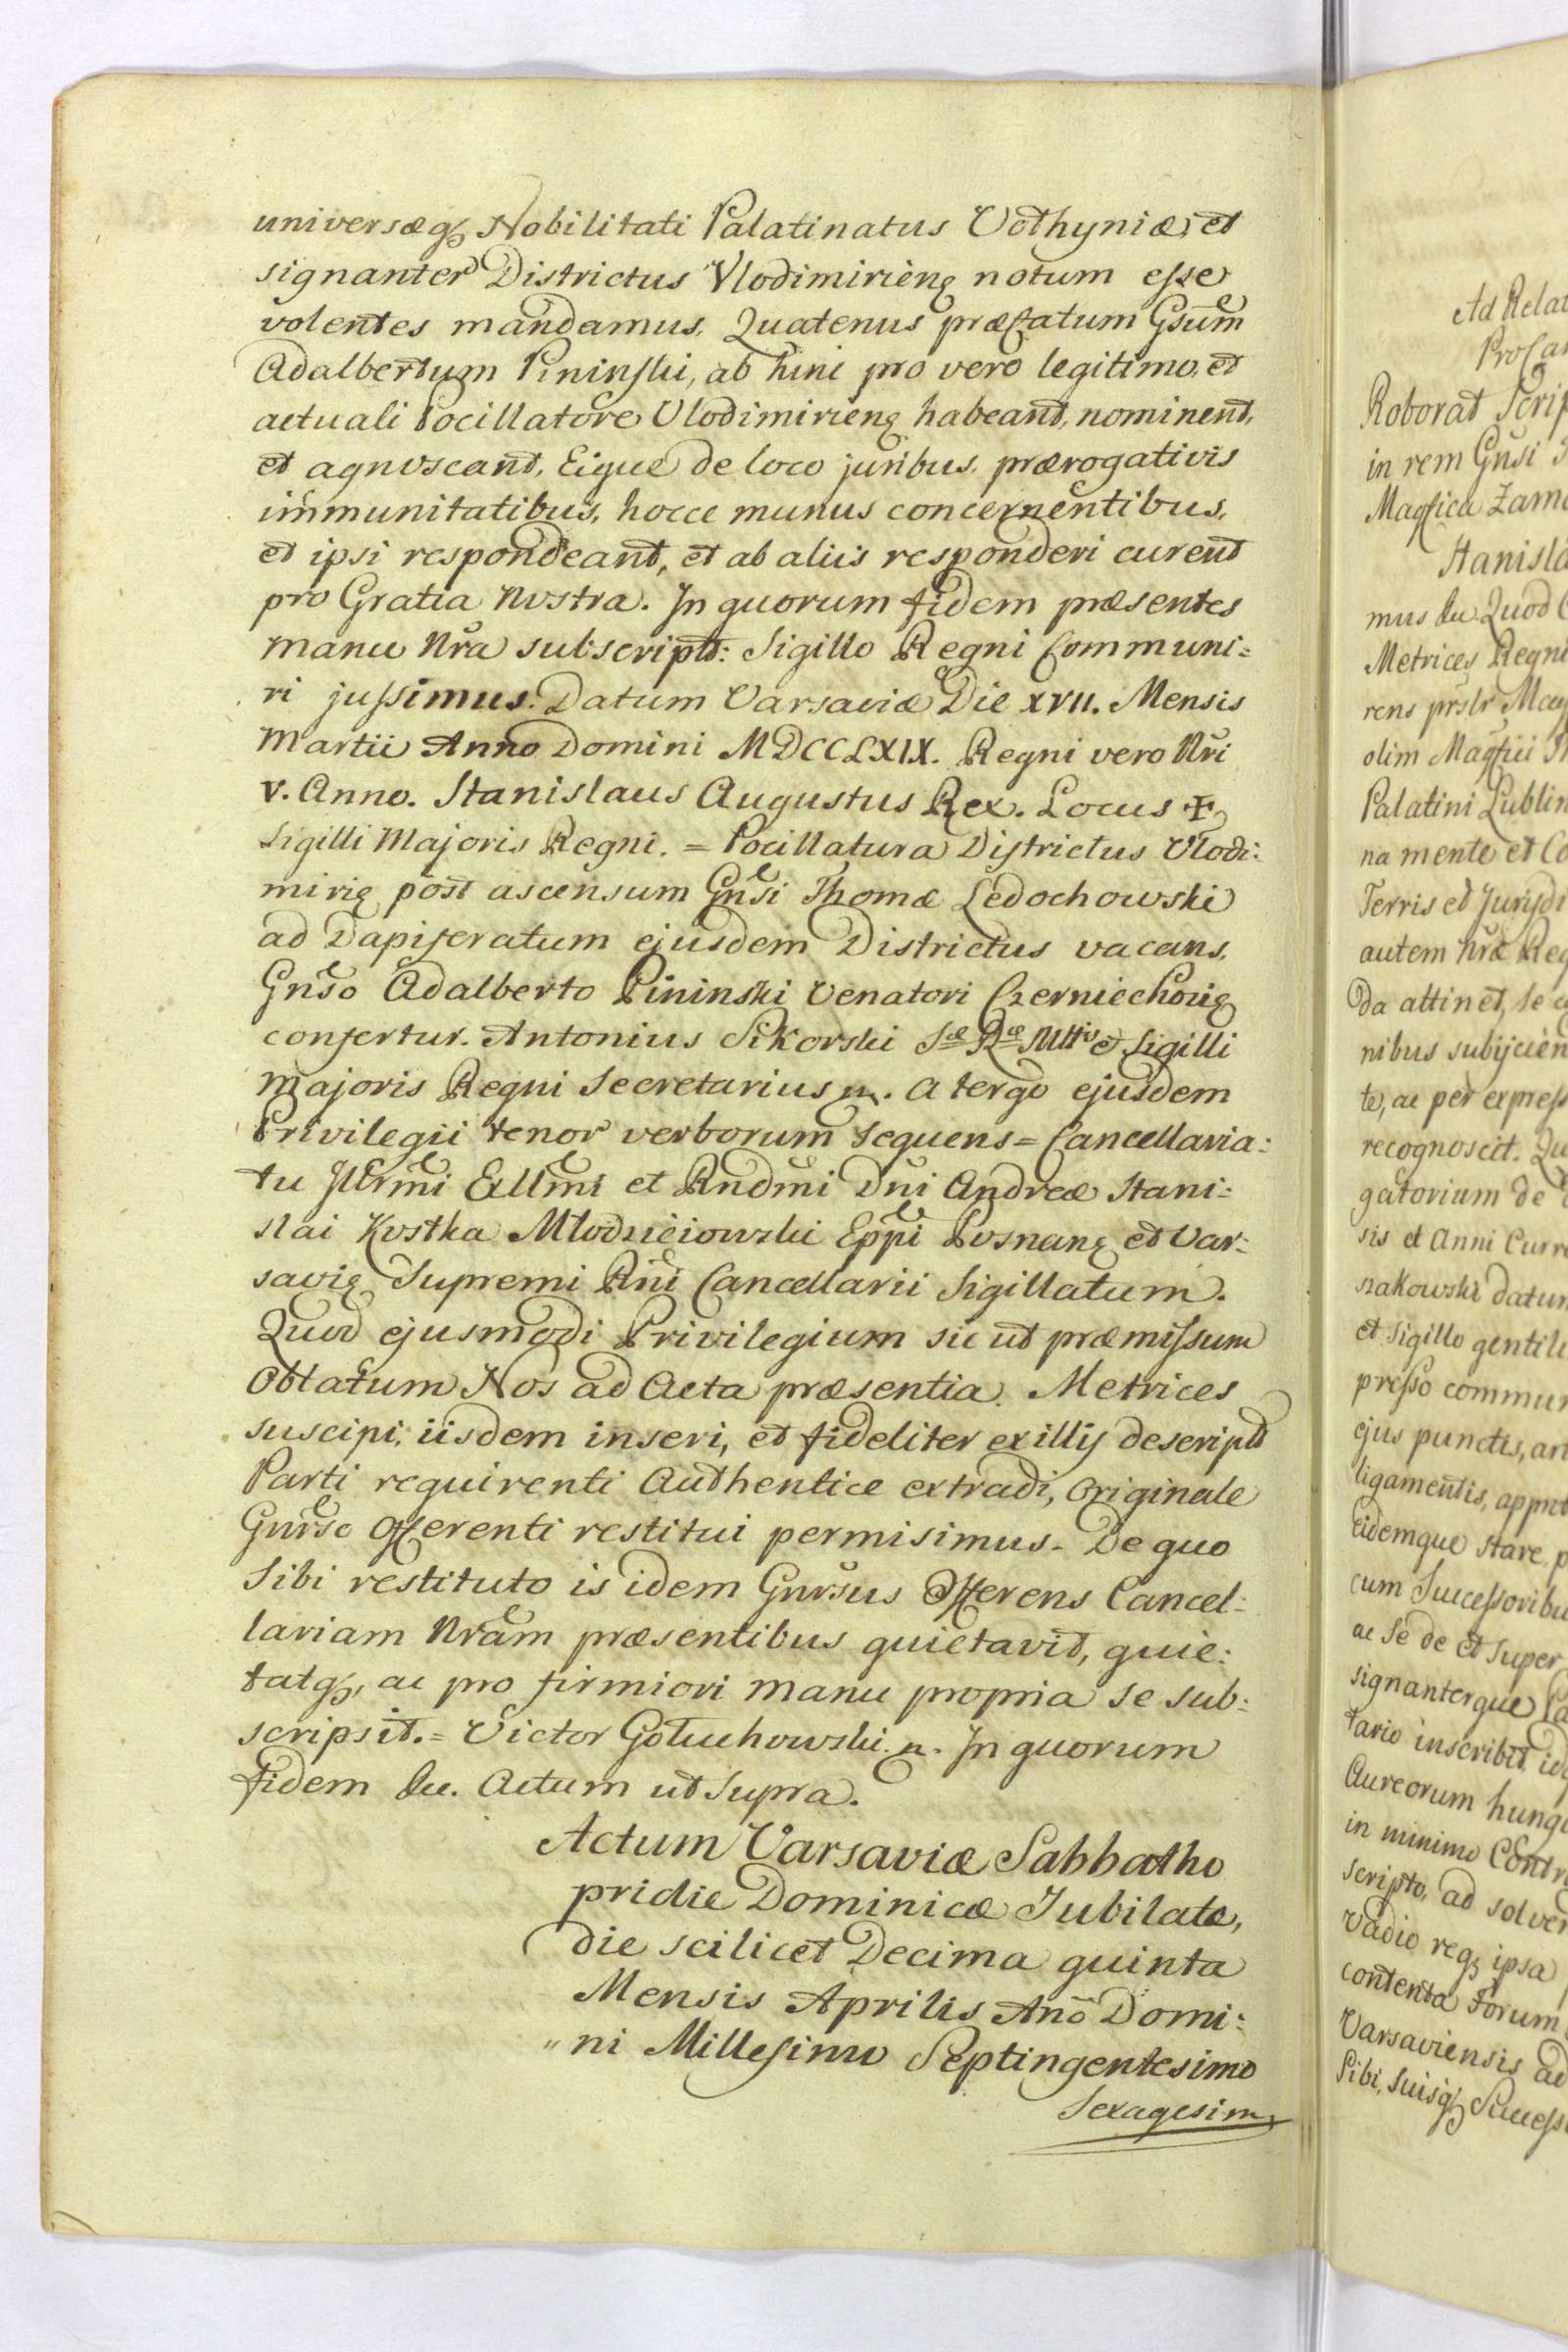 universæq₃ Nobilitati Palatinatus Volhyniæ, et
signanter Districtus Vlodimirieñ notum esse
volentes mandamus, Quatenus præfatum Gsum
Adalbertum Pininski, ab hinc pro vero legitimo, et
actuali Pocillatore Vlodimirieñ habeant, nominent,
et agnoscant, Eique de loco juribus, prærogativis
immunitatibus, hocce munus concernentibus,
et ipsi respondeant, et ab aliis responderi curent
pro Gratia Nostra. In quorum fidem præsentes
manu Nra subscript: Sigillo Regni Communi:
ri jussimus. Datum Varsaviæ Die XVII. Mensis
Martii Anno Domini MDCCLXIX. Regni vero Nri
V. Anno. Stanislaus Augustus Rex. Locus ✠
Sigilli Majoris Regni. = Pocillatura Districtus Vlodi:
mirię post ascensum Gnsi Thomæ Ledochowski
ad Dapiferatum ejusdem Districtus vacans,
Gnso Adalberto Pininski Venatori Czerniechovię
confertur. Antonius Sikorski Sæ Ræ Mttis et Sigilli
Majoris Regni Secretarius m. A tergo ejusdem
Privilegii tenor verborum sequens = Cancellaria:
tu Illrmi Exllmi et Rndmi Dni Andreæ Stani:
slai Kostka Młodzieiowski Eppi Posnanę et Var:
savię Supremi Rni Cancellarii Sigillatum.
Quod ejusmodi Privilegium sic ut præmissum
Oblatum Nos ad Acta præsentia Metrices
suscipi, iisdem inseri, et fideliter ex illis descript
Parti requirenti Authentice extradi, Originale
Gnrso Offerenti restitui permisimus. De quo
Sibi restituto is idem Gnrsus Offerens Cancel:
lariam Nram præsentibus quietavit, quie:
tatq₃, ac pro firmiori manu propria se sub:
scripsit. = Victor Gołuchowski m. In quorum
fidem &c. Actum ut Supra.
Actum Varsaviæ Sabbatho
pridie Dominicæ Jubilate,
die scilicet Decima quinta
Mensis Aprilis Año Domi:
"ni Millesimo Septingentesimo
Sexagesim
Ad Relat
Roborat Scrip
in rem Gnsi
Magfica Zam
Stanisla
mus &c Quod
Metrices Regni
rens prslr
olim Magfici
Palatini Lublin
na mente et Co
Terris et Jurisdi
autem Nræ Reg
Da attinet, se
nibus subijcien
te, ac per express
recognoscit. Qu
gatorium de
sis et Anni Curre
szakowski datum
et Sigillo gentili
presso commun
ejus punctis, art
ligamentis, approb
Eidemque stare p
cum Successoribu
ac Se de et Super
signanterque
tario inscribit, id
Aureorum hung
in minimo Contra
scripto, ad solven
Vadio req₃ ipsa
contenta Forum
Varsaviensis ad
Sibi, Suisq₃ Success